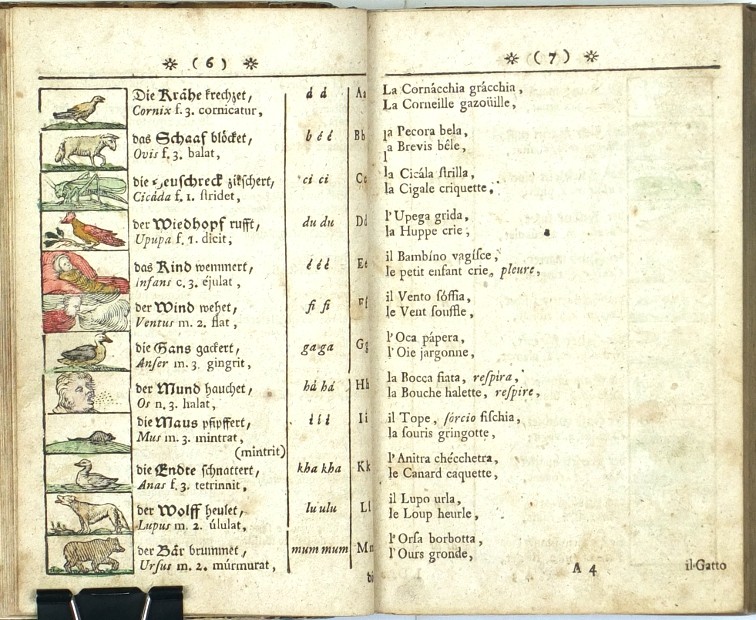 ❋ ( 6 ) ❋
Die Krähe krechzet, á á A
Cornix f. 3. cornicatur,
das Schaaf blöcket, b é é Bb
Ovis f. 3. balat,
die Heuschreck zitschert, ci ci Cc
Cicáda f. 1. stridet,
der Wiedhopf rufft, du du Dd
Upupa f. 1. dicit,
das Kind wemmert, é é é Ee
Infans c. 3. éjulat,
der Wind wehet, fi fi Ff
Ventus m. 2. flat,
die Gans gackert, ga ga Gg
Anser m. 3. gingrit,
der Mund hauchet, há há Hh
Os n. 3. halat,
die Maus pfipffert, i i i Ii
Mus m. 3. mintrat,
(mintrit)
die Endte schnattert, kha kha Kk
Anas f. 3. tetrinnit,
der Wolff heulet, lu ulu Ll
Lupus m. 2. úlulat,
der Bär brummet, mum mum Mm
Ursus m. 2. múrmurat,
❋ ( 7 ) ❋
La Cornácchia grácchia,
La Corneille gazoüille,
la Pecora bela,
la Brevis bêle,
la Cicála strilla,
la Cigale criquette,
l'Upega grida,
la Huppe crie,
il Bambíno vagisce,
le petit enfant crie, pleure,
il Vento sóffia,
le Vent souffle,
l'Oca pápera,
l'Oie jargonne,
la Bocca fiata, respira,
la Bouche halette, respire,
il Tope, sórcio fischia,
la souris gringotte,
l'Anitra chécchetra,
le Canard caquette,
il Lupo urla,
le Loup heurle,
l'Orsa borbotta,
l'Ours gronde,
A 4 il Gatto